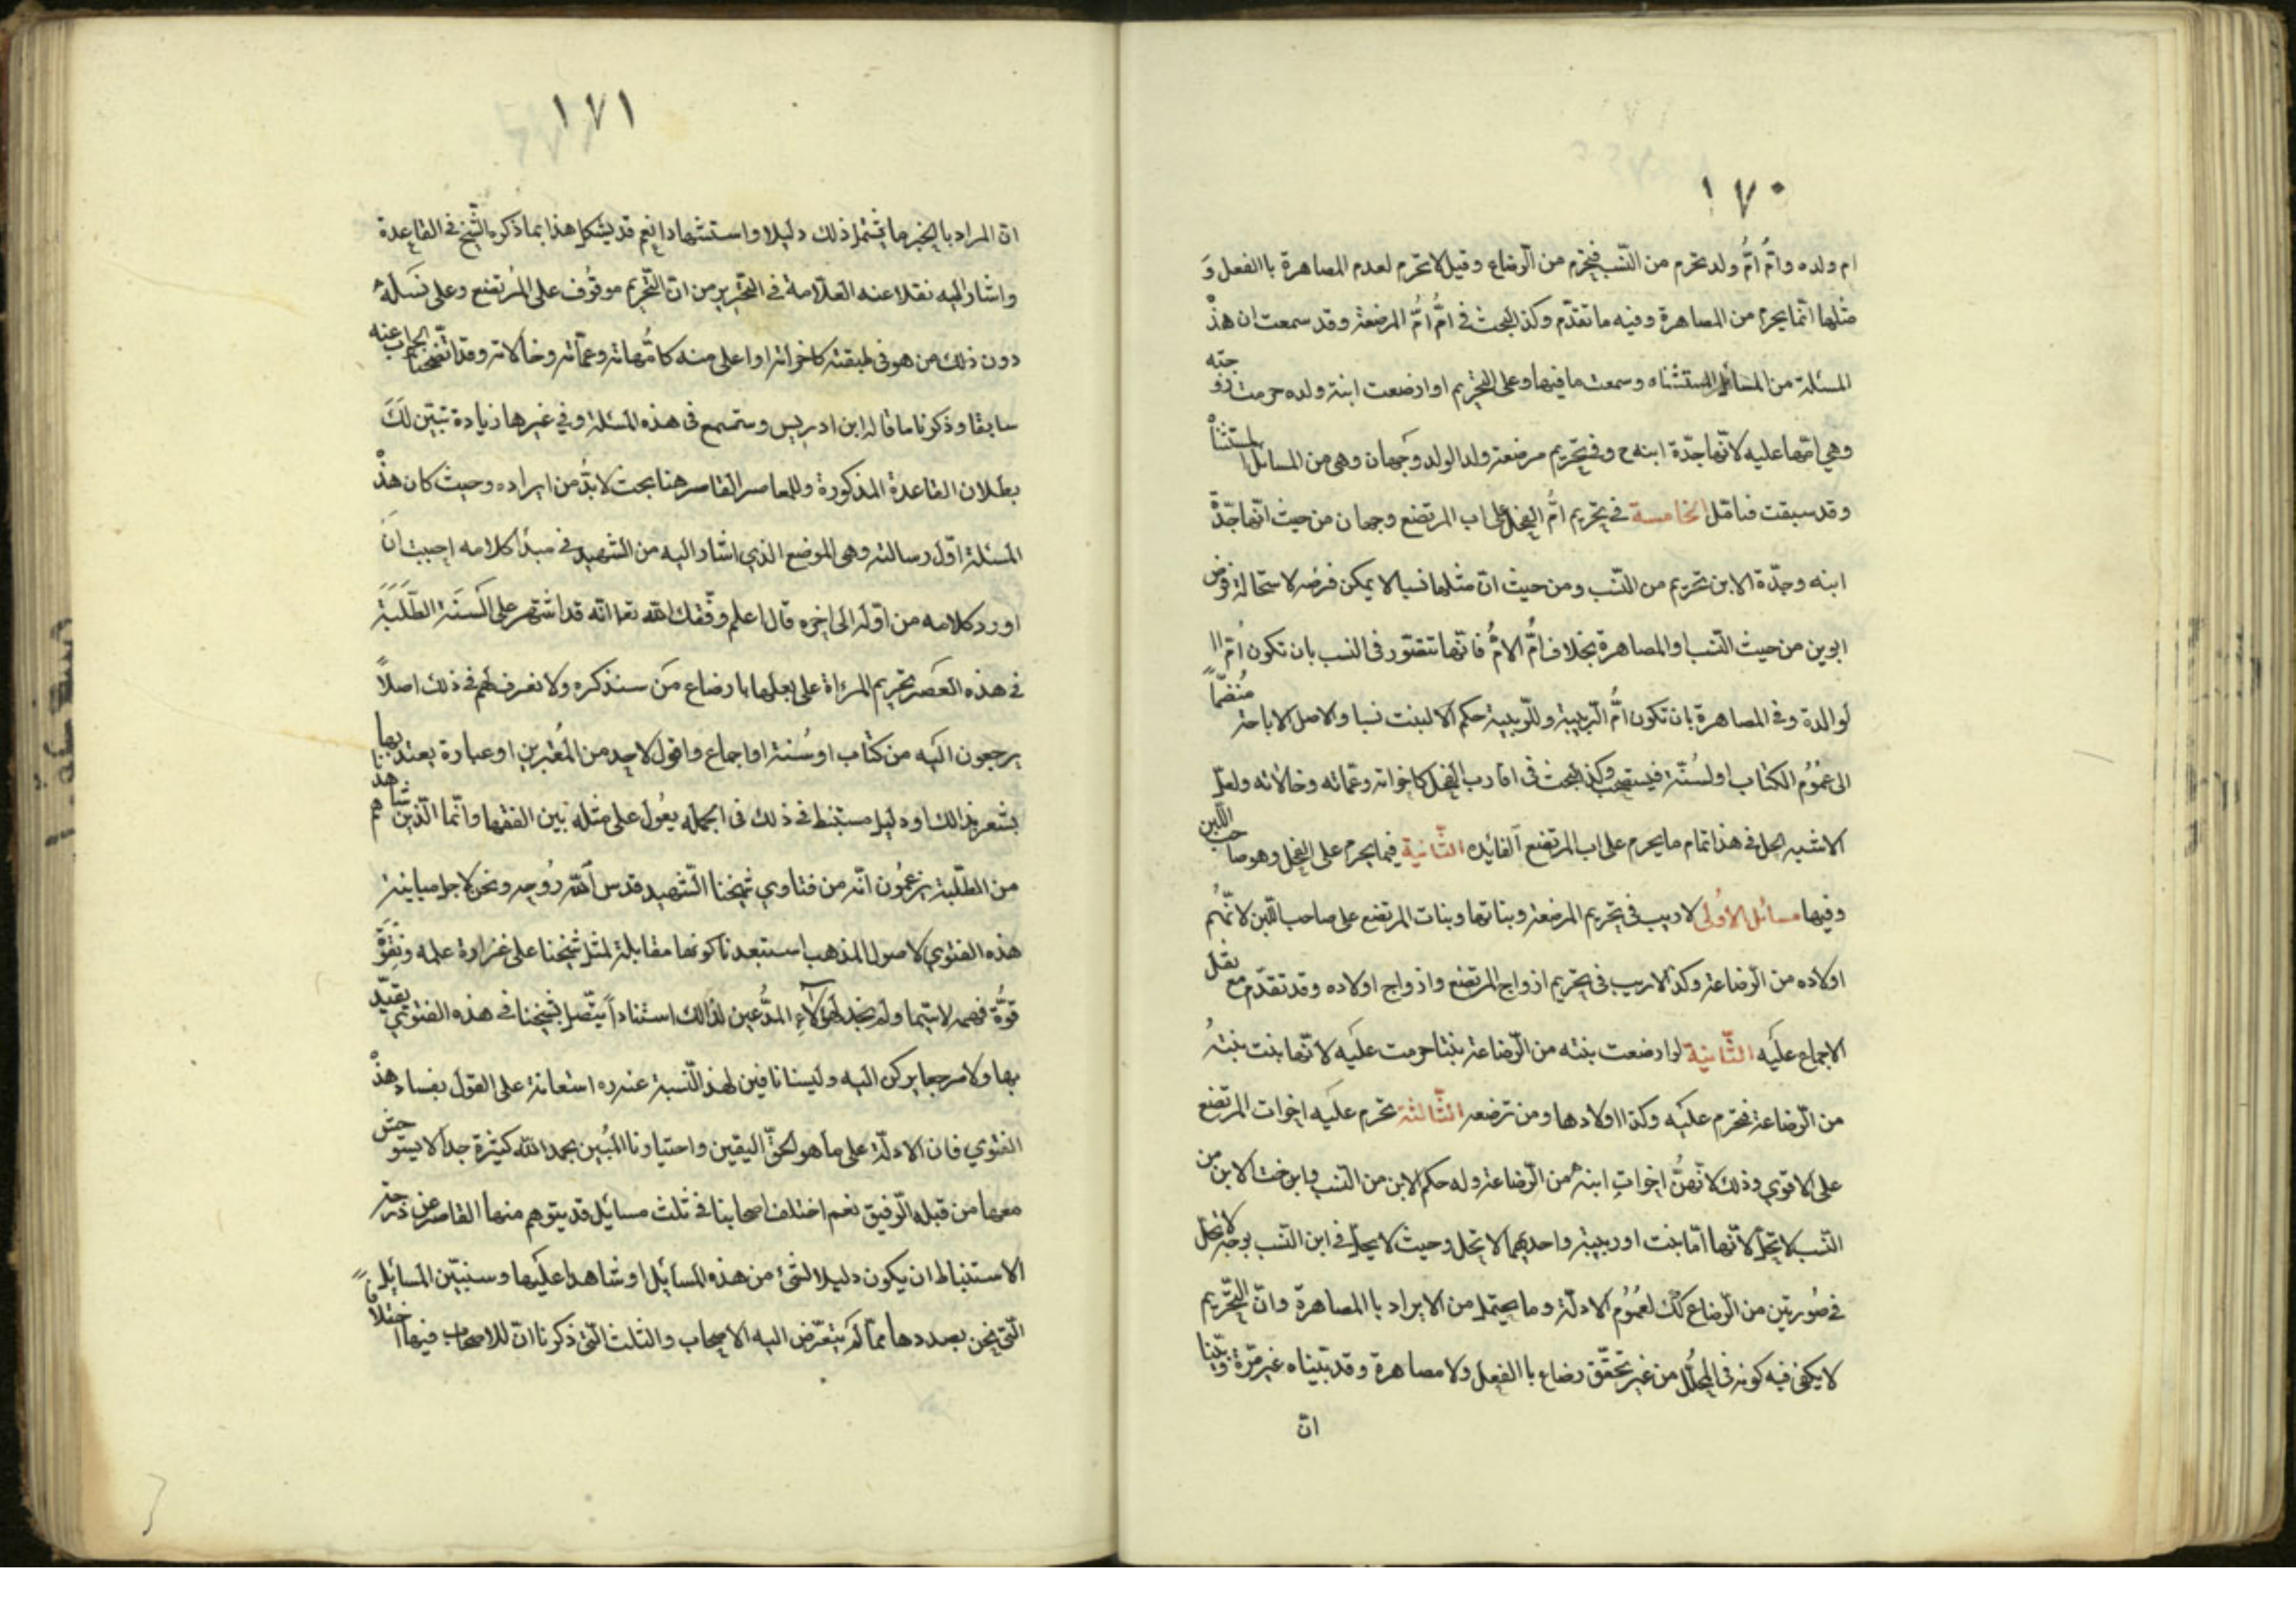 ١٧٠
ام ولده وامُّ امُّ ولد تحرم من النّسب فيحرم من الرّضاع وقيل لا تحرم لعدم المصاهرة باالفعل وَ
مثلها انّما يحرم من المصاهرة وفيه ما تقدّم وكذا البحث في امُّ امُّ المرضعة وقد سمعت ان هذْه
المسئلة من المسائل المستثناه وسمعت ما فيها وعلى التحريم لو ارضعت ابنة ولده حرمت زوجته
وهي امّها عليه لانّها جدّة ابنه ح وفي تحريم مرضعة ولد الولد وجهان وهى من المسائل المستثناْة
وقد سبقت فتامّل الخامسة في تحريم امُّ الفحل على اب المرتضع وجهان من حيث انّها جدّة
ابنه وجدّة الابن تحريم من النّسب ومن حيث انّ مثلها نسبا لا يمكن فرضه لاستحالة فرض
ابوين من حيث النّسب والمصاهرة بخلاف امُّ الامُّ فانّها تتصّور فى النسب بان تكون امّ اا
لوالدة وفي المصاهرة بان تكون امُّ الرّبيبة وللرّبيبة حكم الابنت نسبا والاصل الاباحة منُضمّاً
الى عمُوُم الكتاب اولسُنّة فيستصحب وكذا البحث فى اقارب الفحل كاخواته وعمّاته وخالاته ولعلّ
الاشبه الحل في هذا تمام ما يحرم على اب المرتضع الفائده الثّانية فيما يحرم على الفحل وهو صاحب اللّبن
وفيها مسائل الاُولى لا ريب فى تحريم المرضعة وبناتها وبنات المرتضع على صاحب اللّبن لانّهُم
اولاده من الرّضاعة وكذا لا ريب فى تحريم ازواج المرتضع وازواج اولاده وقد تقدّم مع نقل
الاجماع عليه الثّانية لو ارضعت بنته من الرّضاعة بنتا حرمت عليه لانّها بنت بنتهُ
من الرّضاعة فتحرم عليه وكذا اولادها ومن ترضعه الثّالثة تحرم عليه اخوات المرتضع
على الاقوي وذلك لانّهنُّ اخواتِ ابنه من الرّضاعة وله حكم الابن من النّسب واخت الابن من
النّسب لا تحلّ لانّها امّا بنت اوربيبة واحديهما لا تحل وحيث لا يحلّ في ابن النّسب بوجه لا تحلّ
في صُورتين من الرّضاع كلّك لعمُوُم الادلّة وما يحتمل من الايراد باالمصاهرة وانّ التّحريم
لا يكفى فيه كونه فى المحلّل من غير تحقّق رضاع باالفعل ولا مصاهرة وقد بيّناه غير مرّة وبيّنا
انّ
١٧١
انّ المراد بالخبر ما يشتمل ذلك دليلا واستشهادا نعم قد يشكل هذا بما ذكره الشّيخ في القاعدة
واشار اليه نقلا عنه العلّامة في التّحرير من انّ التّحريم موقوُف على المُرتضع وعلى نَسلهُ
دون ذلك من هو فى طبقته كاخواته اواعلى منه كامُّهاته وعمّاته وخالاته وقد اتّضحنا الجواب عنه
سابقا وذكرنا ما قاله ابن ادريس وستسمع فى هذه المسئلة وفي غيرها زيادة تبيّن لَكَ
بطلان القاعدة المذكورة وللمعاصر القاصر هنا بحث لابُدّ من ايراده وحيث كان هذْه
المسئلة اوّل رسالته وهى الموضع الذي اشار اليه من الشّهيد في مبدأ كلامه احببت انَ
اورد كلامه من اوّله الى اخره قال اعلم وفّقك الله تعا انّه قد اشتهر على اَلسَنَة الطّلَبَة
في هذه العَصر تحريم المرءاة على بعلها بارضاع مَن سنذكره ولا نعرف لَهم في ذلك اصلاً
يرجعون اليه من كتاب اوسُنة او اجماع واقول لاحد من المُعتبرين او عبارة يعتد بها
بشعر بذالك اودليل مستنبط فى ذلك فى الجمله يعُول على مثله بين الفقها وانّما الّذين شاهدناهم
من الطّلبة يزعمُون انّه من فتاوي شيخنا الشّهيد قدس الله رُوحه ونحن لاجل مباينة
هذه الفتوي لاصول المذهب استبعدنا كونها مقابلة لمثل شيخنا على غزارة علمه وثِقوَّ
قوُّة فهمه لاسّيما ولم نجد لهؤلاءِ المدُّعين لذالك استناداً يتّصل بشيخنا في هذه الفتوي يقيّد
بها ولا مرجعا يركن اليه ولَيسنا نافين لهذ النّسبة عنه ره استعانة على القول بفساد هذْه
الفتوي فان الادلّة على ما هو الحقّ اليقين واحتياونا المبُين بحمد الله كثيرة جدا لا يستوحش
معها من قبله الرّفيق نعم اختلف اصحابنا في ثلث مسايل قد يتوهم منها القاصر عن درجة
الاستنباط ان يكون دليلا لشئ من هذه المسائل او شاهدا عليها وسنبيّن المسائل
الّتى نحن بصددها ممّا لَم يتعّرض اليه الاصحاب والثلث الّتى ذكرنا انّ للاصحاب فيها اختلافاً